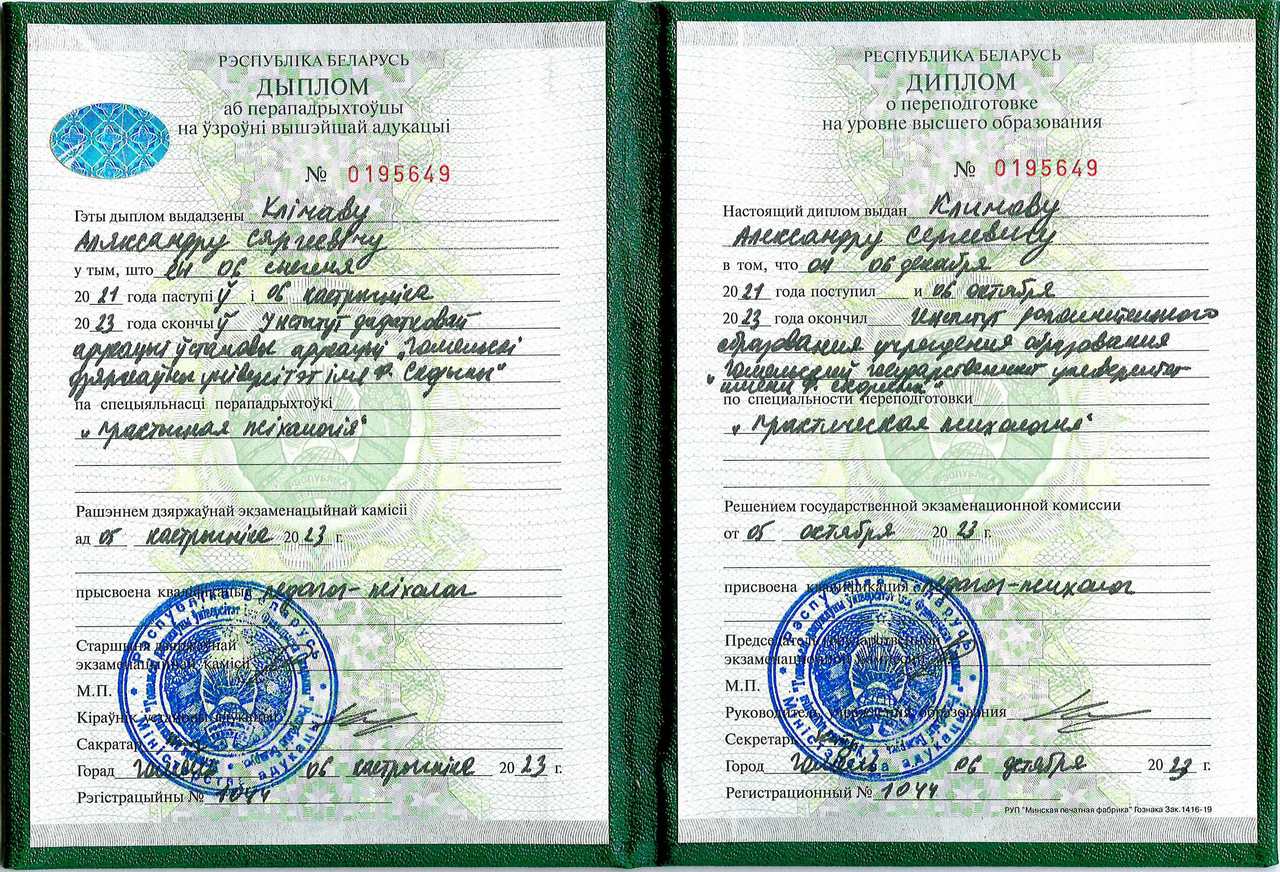 РЭСПУБЛІКА БЕЛАРУСЬ
ДЫПЛОМ
аб перападрыхтоўцы
на ўзроўні вышэйшай адукацыі
№ 0195649
Гэты дыплом выдадзены Клімаву
Аляксандру Сяргеевічу
у тым, што ён 06 снежня
2021 года паступіў і 06 кастрычніка
2023 года скончыў Інстытут дадатковай
адукацыі ўстановы адукацыі „Гомельскі
дзяржаўны універсітэт імя Ф. Скарыны"
па спецыяльнасці перападрыхтоўкі
„Практычная псіхалогія"
Рашэннем дзяржаўнай экзаменацыйнай камісіі
ад 05 кастрычніка 2023 г.
прысвоена кваліфікацыя педагог-псіхолаг
Старшыня дзяржаўнай
экзаменацыйнай камісіі
М.П.
Кіраўнік установы адукацыі
Сакратар
Горад Гомель 06 кастрычніка 2023 г.
Рэгістрацыйны № 1044
Рэспубліка Беларусь
Міністэрства адукацыі
РЕСПУБЛИКА БЕЛАРУСЬ
ДИПЛОМ
о переподготовке
на уровне высшего образования
№ 0195649
Настоящий диплом выдан Климову
Александру Сергеевичу
в том, что он 06 декабря
2021 года поступил и 06 октября
2023 года окончил Институт дополнительного
образования учреждения образования
„Гомельский государственный университет
имени Ф. Скорины"
по специальности переподготовки
„Практическая психология"
Решением государственной экзаменационной комиссии
от 05 октября 2023 г.
присвоена квалификация педагог-психолог
Председатель государственной
экзаменационной комиссии
М.П.
Руководитель учреждения образования
Секретарь
Город Гомель 06 октября 2023 г.
Регистрационный № 1044
Рэспубліка Беларусь
Міністэрства адукацыі
РУП "Минская печатная фабрика" Гознака Зак.1416-19